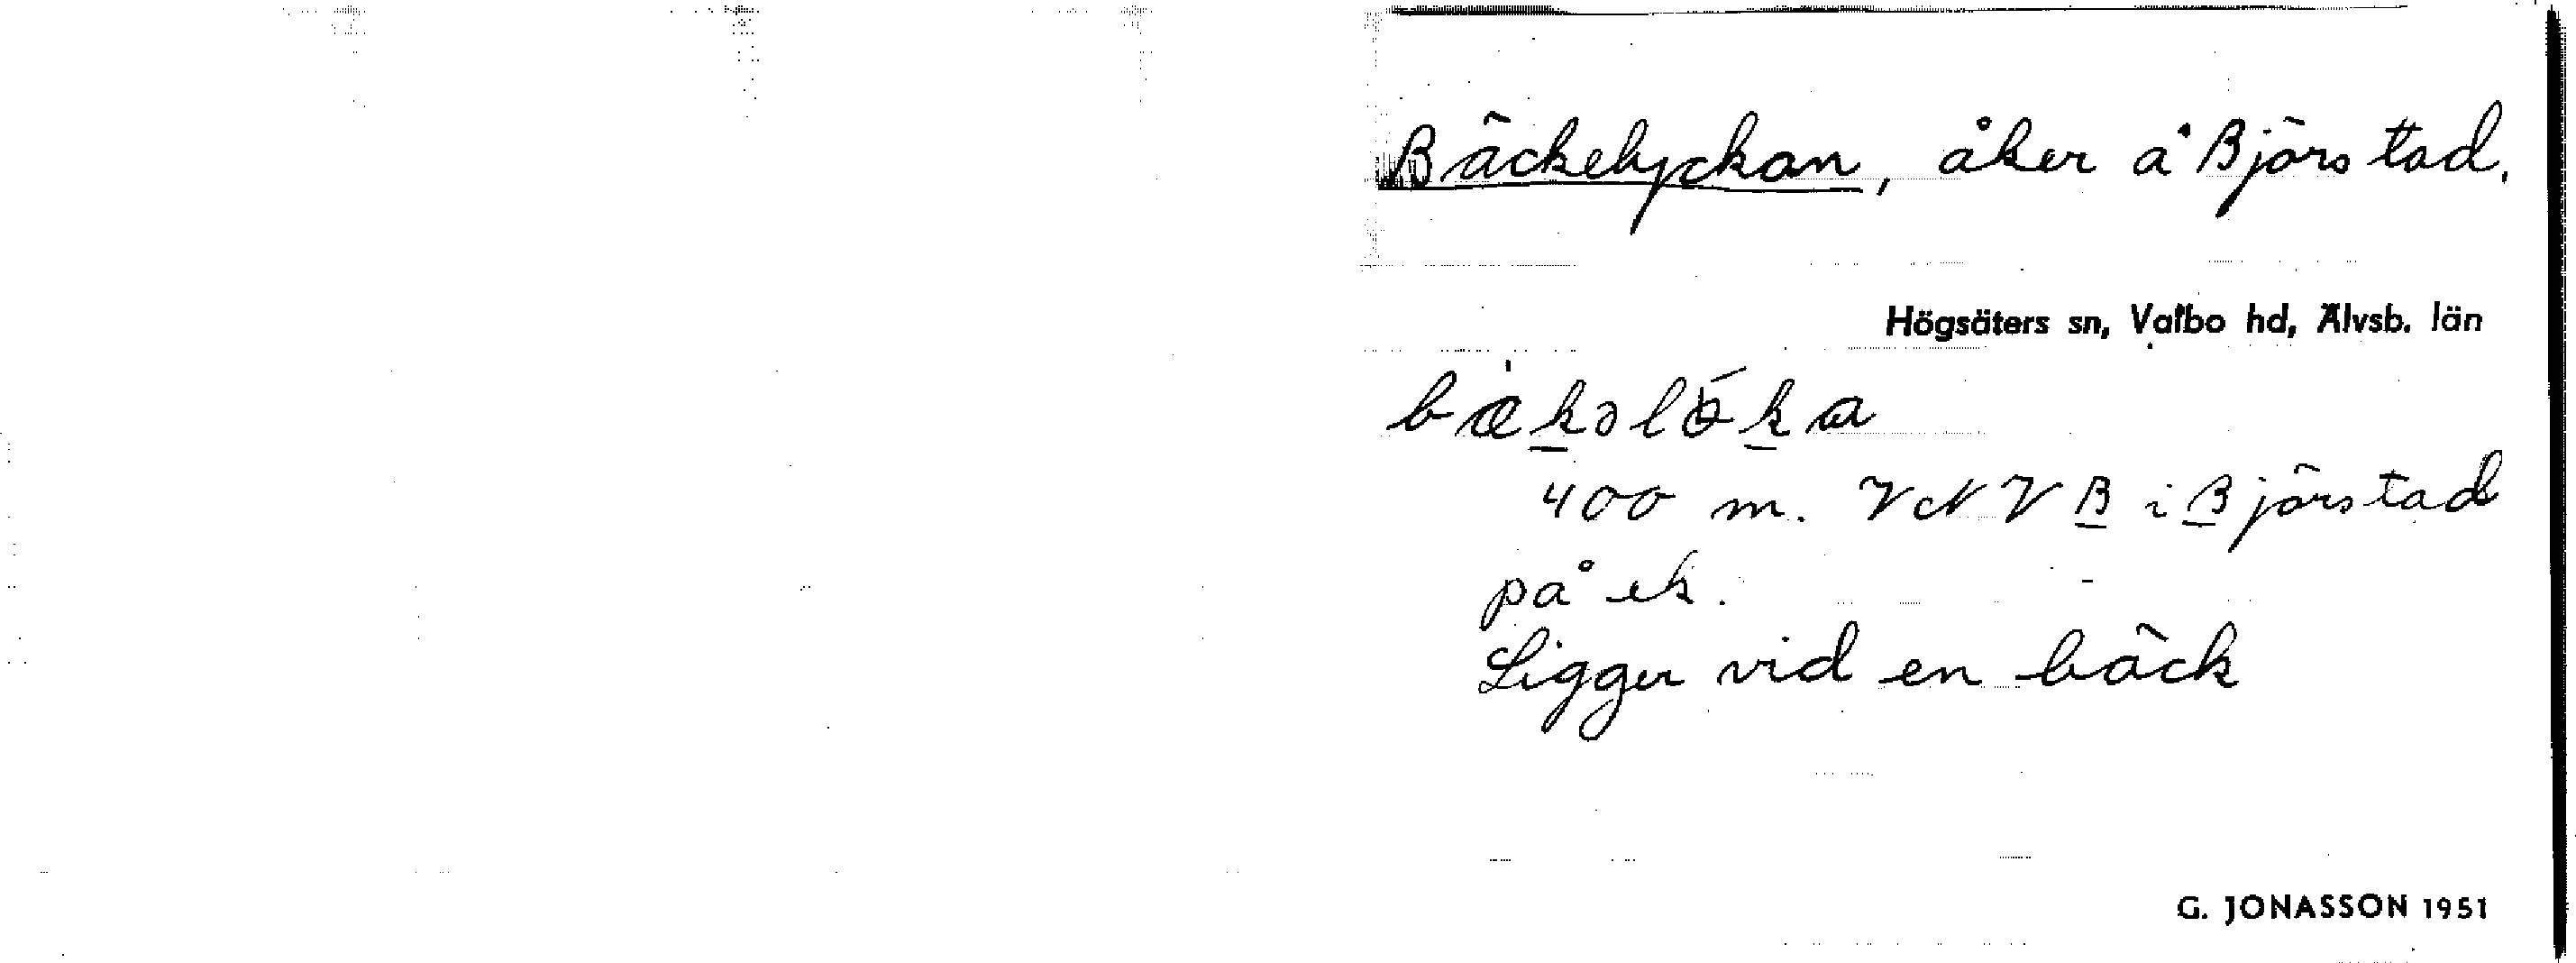 Bäckelyckan, åker å Björstad.
Högsäters sn, Valbo hd, Älvsb. län
bæ̀kəlǿka
400 m. VNV B i Björstad
på ek.
Ligger vid en bäck
G. JONASSON 1951